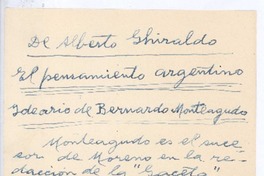 De Alberto Ghiraldo
El pensamiento argentino
Ideario de Bernardo Monteagudo
Monteagudo es el suce-
sor de Moreno en la re-
dacción de la "Gaceta"